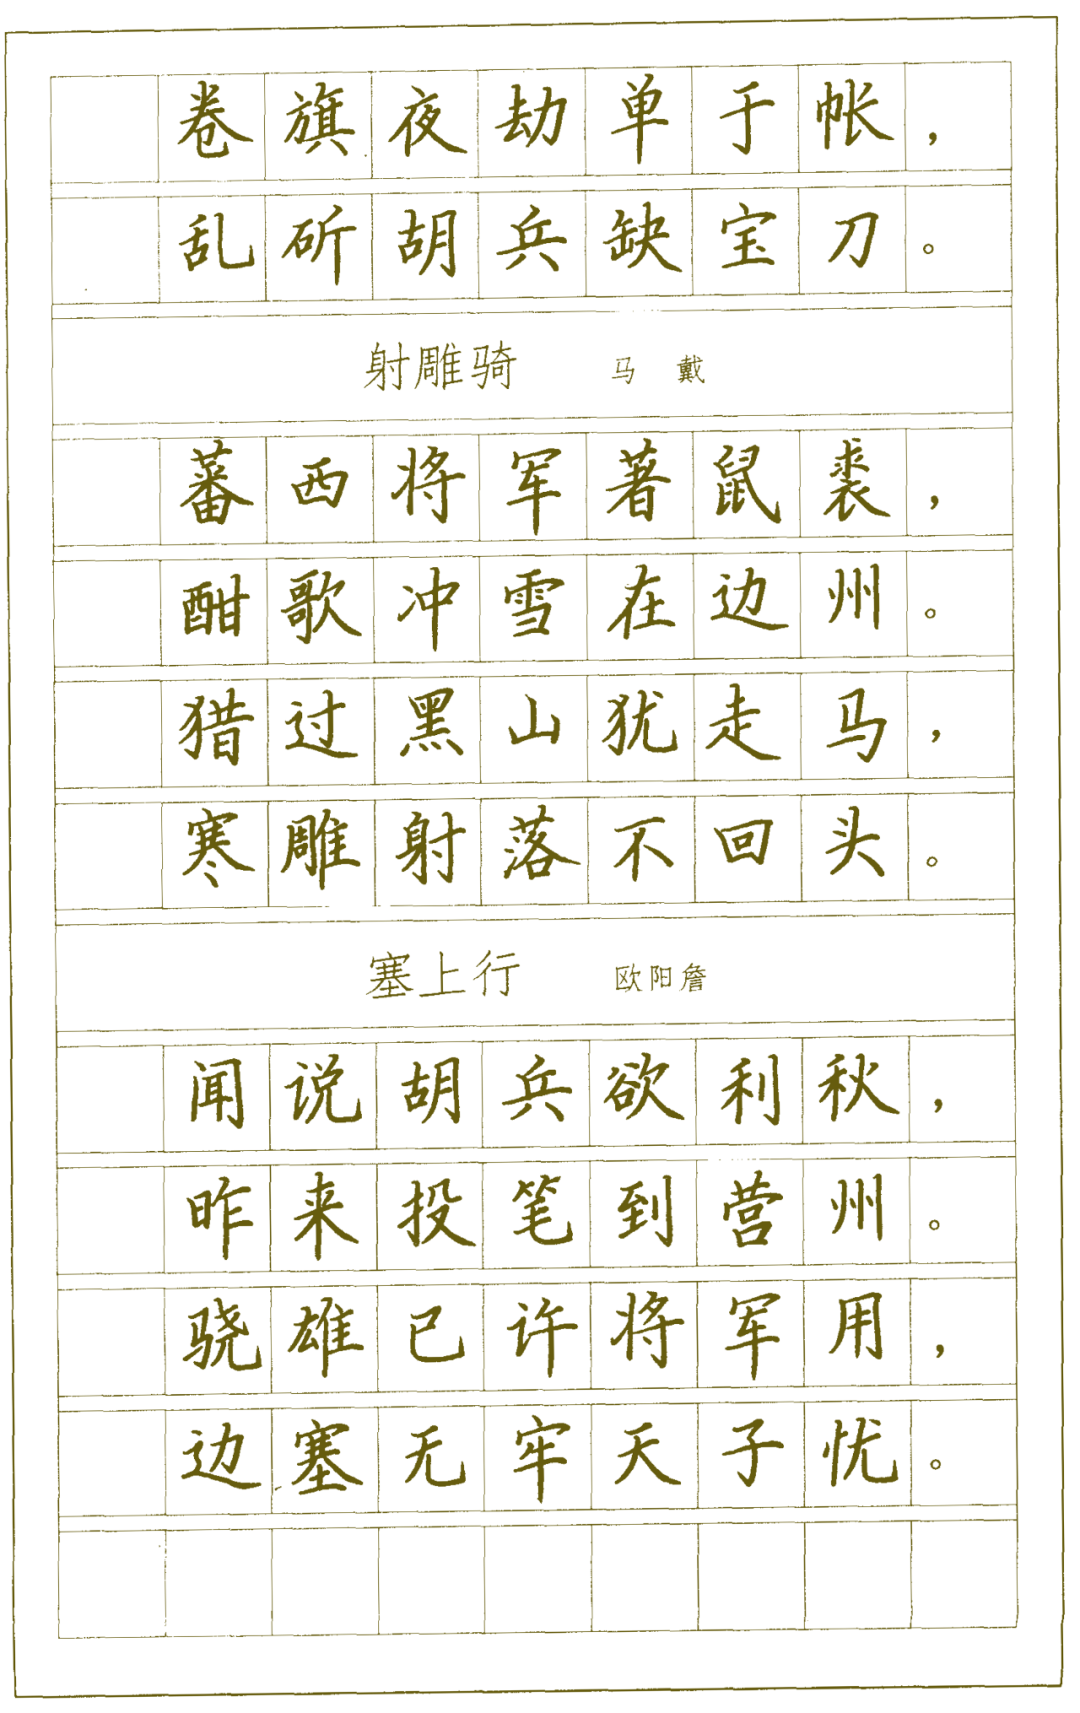 卷旗夜劫单于帐，
乱斫胡兵缺宝刀。
射雕骑 马戴
蕃西将军著鼠裘，
酣歌冲雪在边州。
猎过黑山犹走马，
寒雕射落不回头。
塞上行 欧阳詹
闻说胡兵欲利秋，
昨来投笔到营州。
骁雄已许将军用，
边塞无牢天子忧。